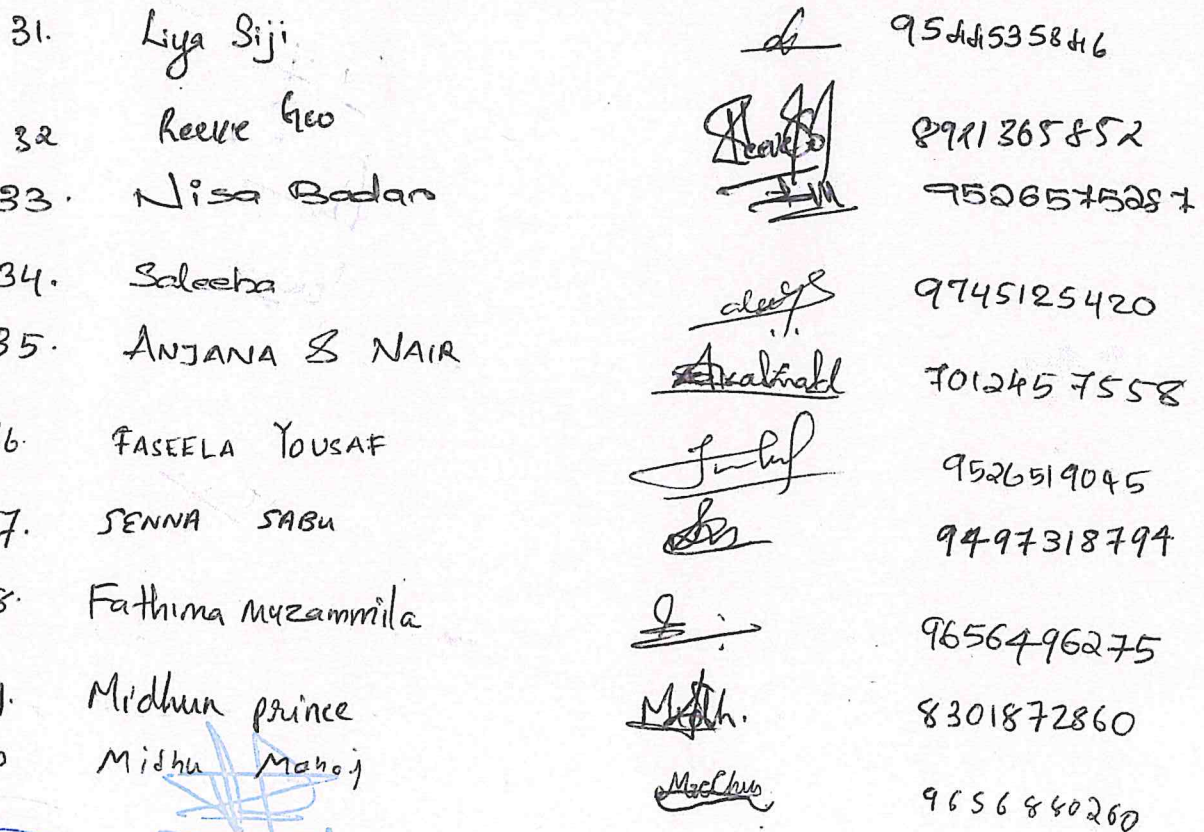 31. Liya Siji 9544535846
32 Reeve Geo 8911365852
33. Nisa Badar 9526575287
34. Saleeba 9745125420
35. ANJANA S NAIR 7012457558
6. FASEELA YOUSAF 9526519045
7. SENNA SABU 9497318794
8. Fathima Muzammila 9656496275
9. Midhun prince Midh. 8301872860
0 Midhu Manoj Midhu 9656840260